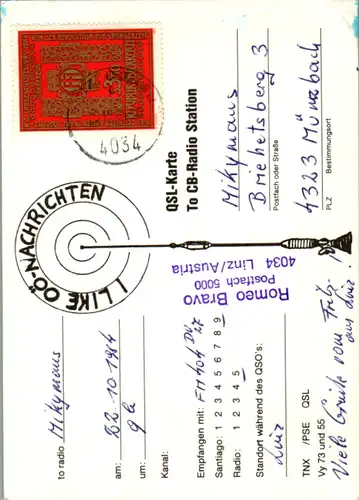 4034
I LIKE OÖ-NACHRICHTEN
QSL-Karte
To CB-Radio Station
Mikymaus
3
Postfach oder Straße
4323 Münzbach
PLZ Bestimmungsort
Romeo Bravo
Postfach 5000
4034 Linz/Austria
to radio Mikymaus
am: 22.10.1984
um:
Kanal:
Empfangen mit: FM 404
Santiago: 1 2 3 4 5 6 7 8 9
Radio: 1 2 3 4 5
Standort während des QSO's:
Linz
TNX /PSE QSL
Vy 73 und 55
Viele Grüße vom Fritz
aus Linz!